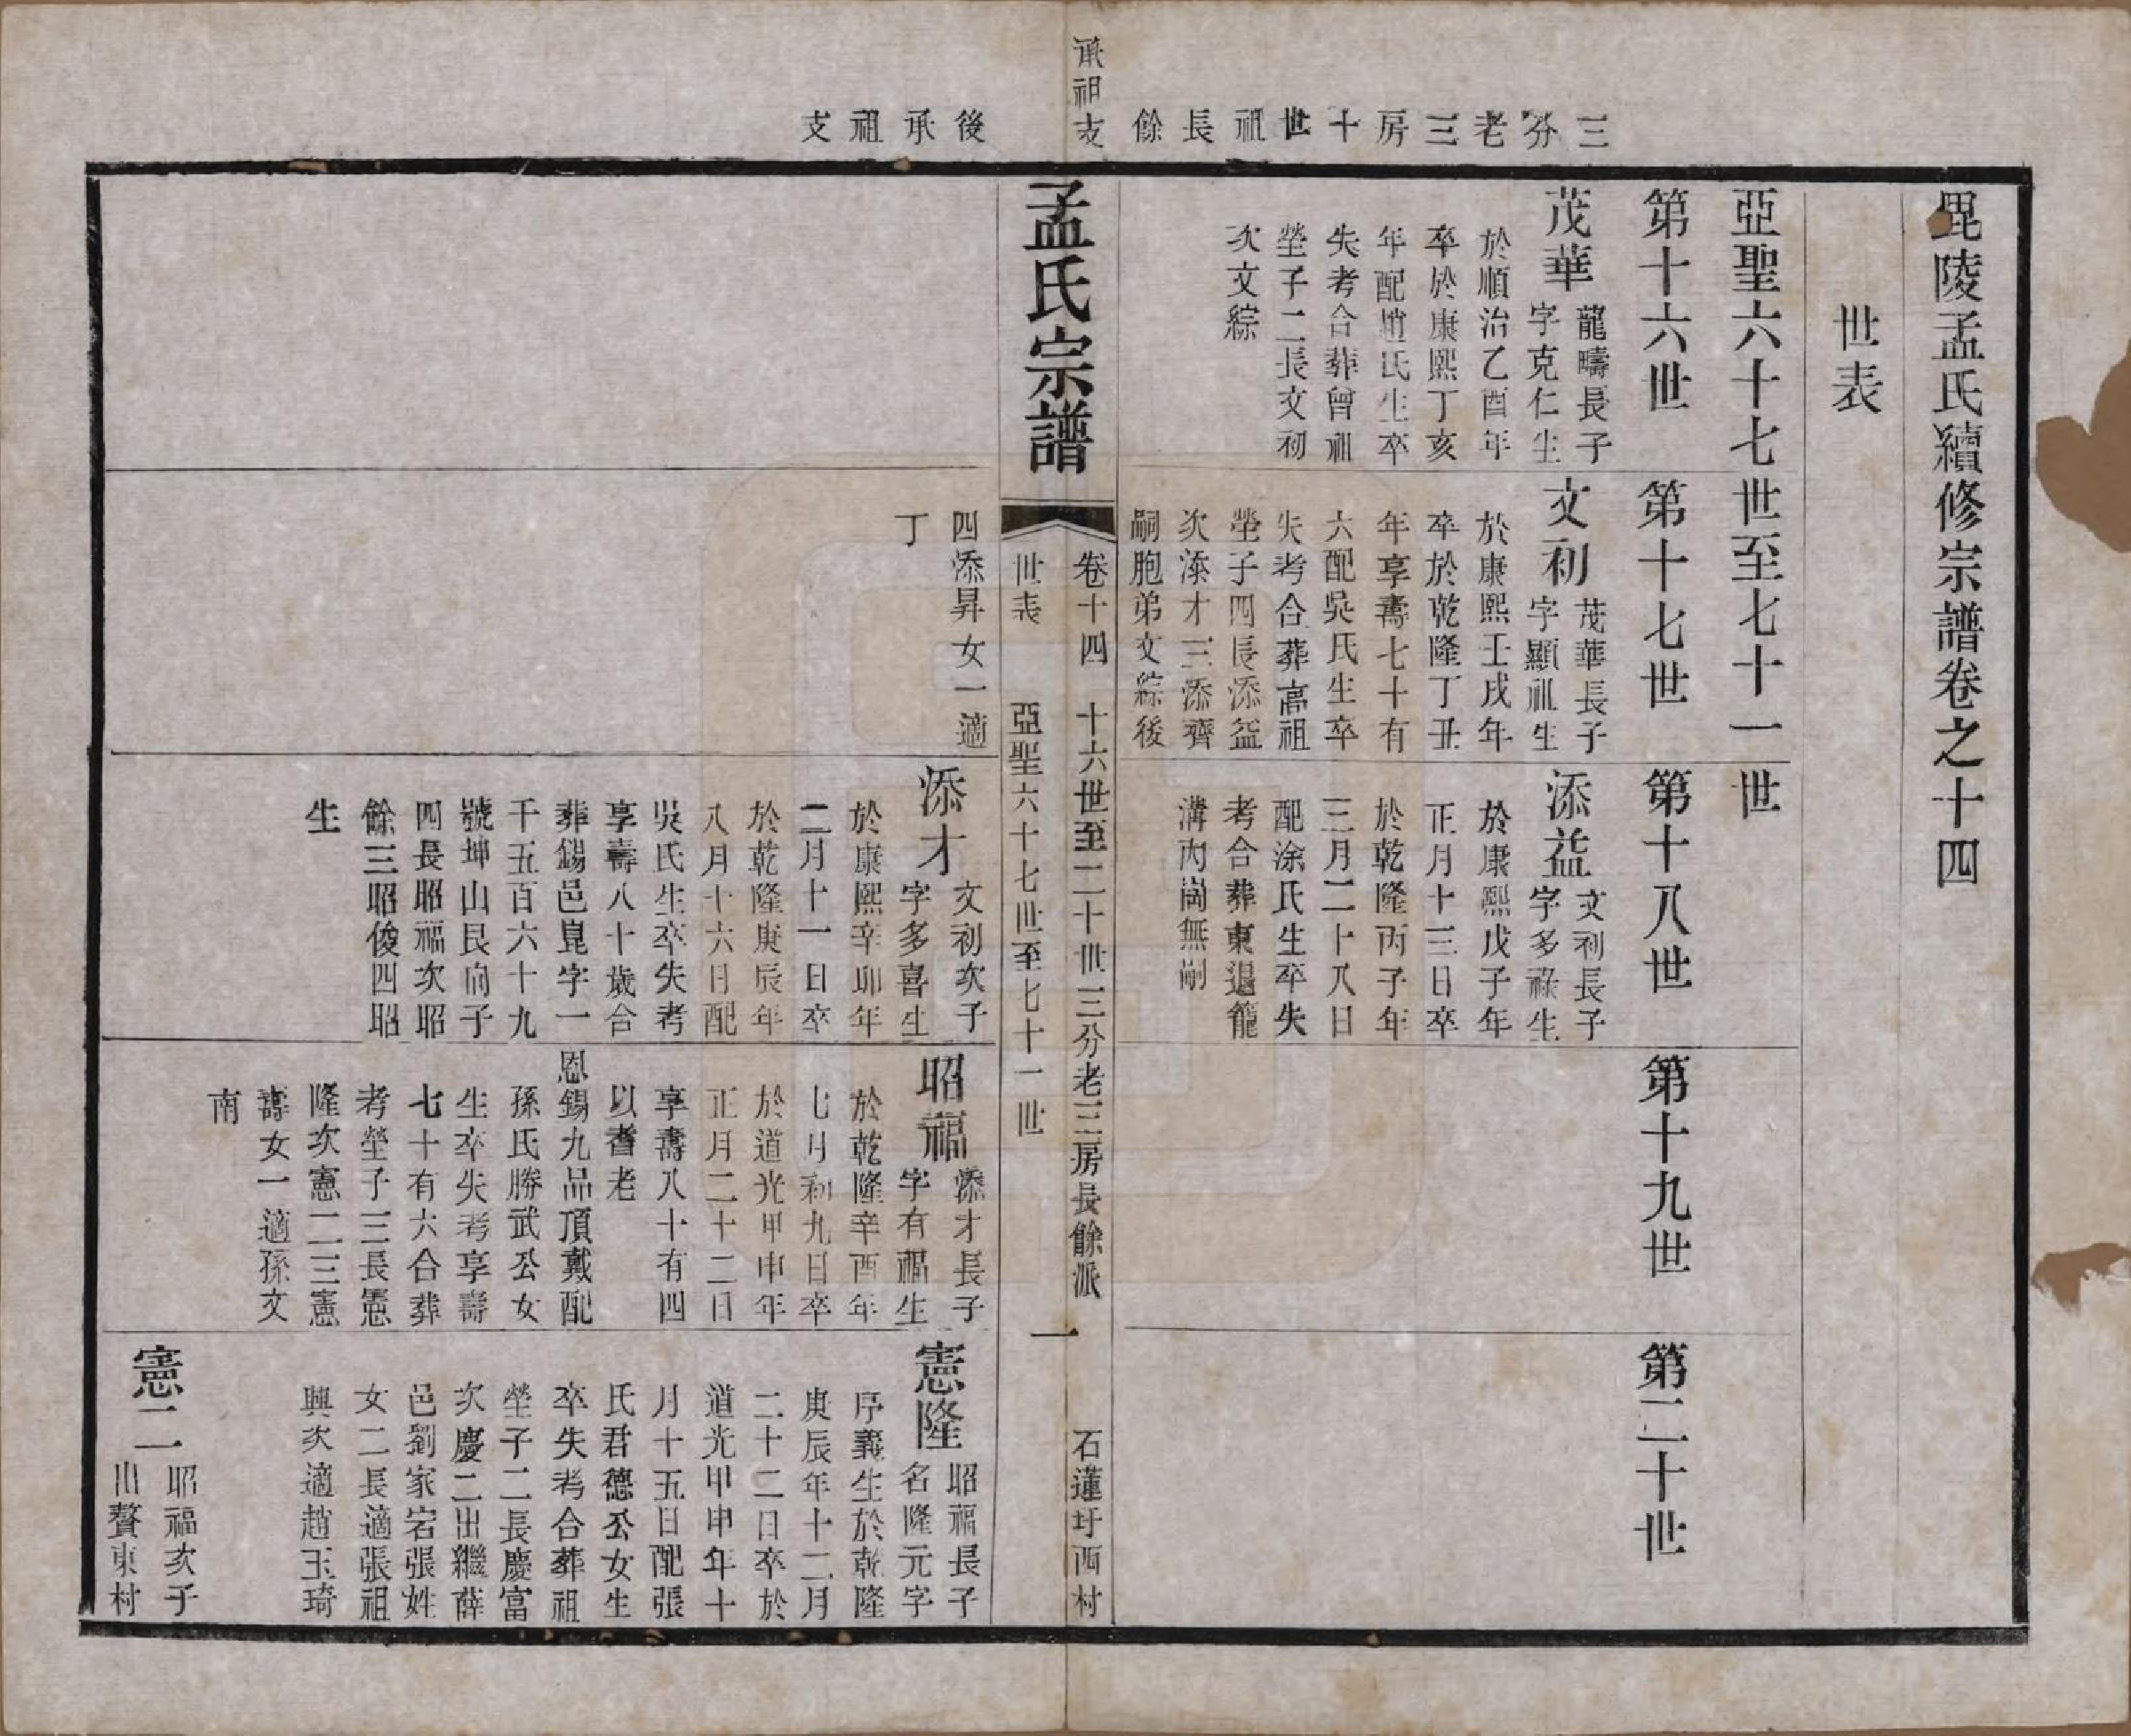 三分老三房十世祖長餘
承祖支
後承祖支
毘陵孟氏續修宗譜卷之十四
世表
亞聖六十七世至七十一世
第十六世
第十七世
第十八世
第十九世
第二十世
茂華
龍疇長子
字克仁生
於順治乙酉年
卒於康熙丁亥
年配趙氏生卒
失考合葬曾祖
塋子二長文初
次文綜
文初
茂華長子
字顯祖生
於康熙壬戌年
卒於乾隆丁丑
年享壽七十有
六配吳氏生卒
失考合葬高祖
塋子四長添益
次添才三添齊
嗣胞弟文綜後
添益
文初長子
字多祿生
於康熙戊子年
正月十三日卒
於乾隆丙子年
三月二十八日
配涂氏生卒失
考合葬東退籠
溝內崗無嗣
孟氏宗譜
卷十四 十六世至二十世三分老三房長餘派 石蓮圩西村
世表 亞聖六十七世至七十一世
一
四添昇女一適
丁
添才
文初次子
字多喜生
於康熙辛卯年
二月十一日卒
於乾隆庚辰年
八月十六日配
吳氏生卒失考
享壽八十歲合
葬錫邑崑字一
千五百六十九
號坤山艮向子
四長昭福次昭
餘三昭俊四昭
生
昭福
添才長子
字有福生
於乾隆辛酉年
七月初九日卒
於道光甲申年
正月二十二日
享壽八十有四
以耆老
恩錫九品頂戴配
孫氏勝武公女
生卒失考享壽
七十有六合葬
考塋子三長憲
隆次憲二三憲
壽女一適孫文
南
憲隆
昭福長子
名隆元字
序義生於乾隆
庚辰年十二月
二十二日卒於
道光甲申年十
月十五日配張
氏君德公女生
卒失考合葬祖
塋子二長慶富
次慶二出繼薛
邑劉家宕張姓
女二長適張祖
興次適趙玉琦
憲二
昭福次子
出贅東村